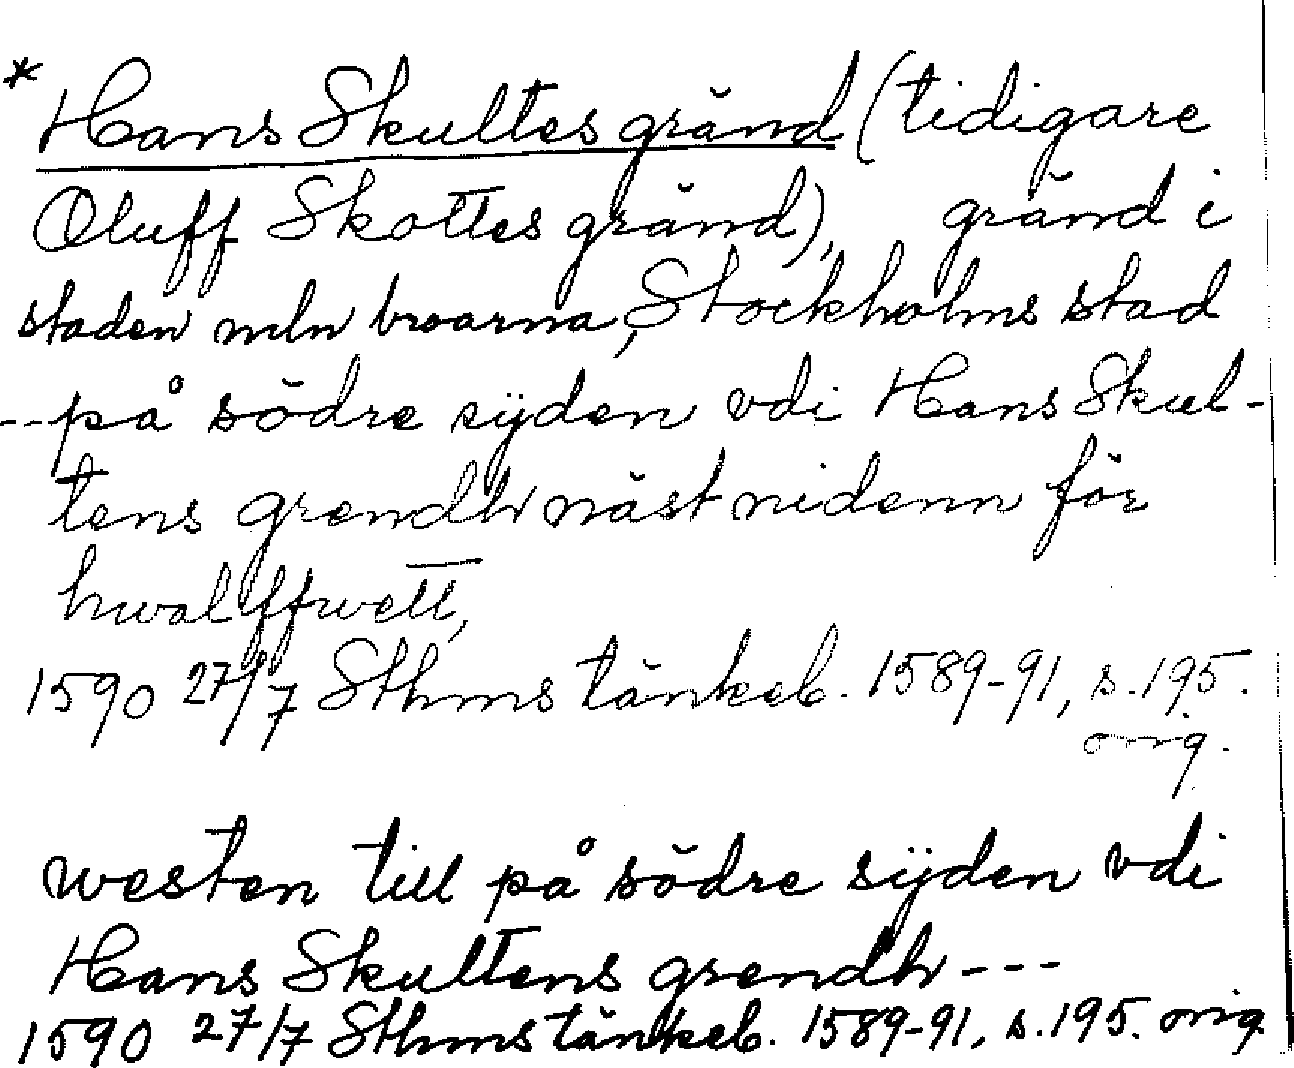 * Hans Skultes gränd (tidigare
Oluff Skottes gränd), gränd i
staden mln broarna, Stockholms stad
--på södre sÿden vdi Hans Skul-
tens grendh näst nidenn för
hwalffwett,
1590 27/7 Sthms tänkeb. 1589-91, s.195.
orig.
westen till på södre sÿden vdi
Hans Skultens grendh---
1590 27/7 Sthms tänkeb. 1589-91, s.195. orig.